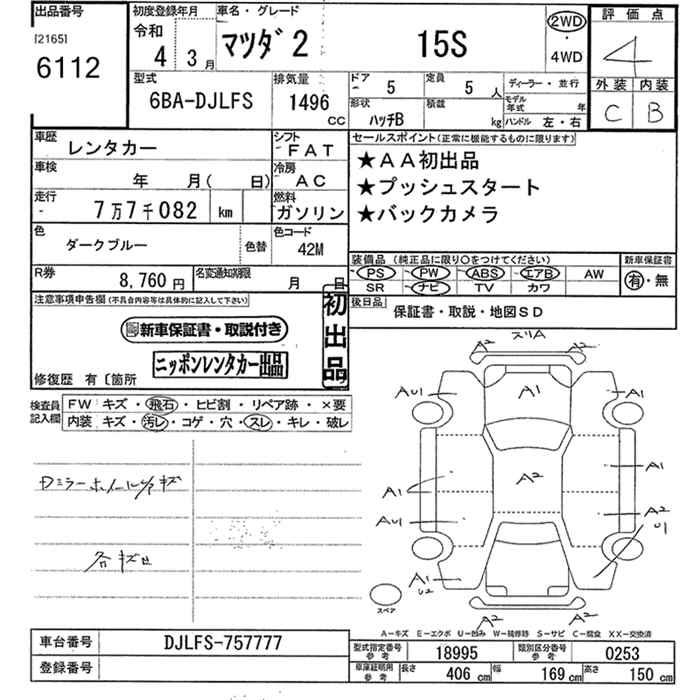 出品番号
[2165]
6112
初度登録年月
令和
4 3月
車名・グレード
マツダ2 15S
2WD
・
4WD
評価点
4
外装 内装
C B
型式
6BA-DJLFS
排気量
1496
CC
ドア 5
定員 5 人
形状 ハッチB
積載 kg
ディーラー・並行
モデル年式 年
ハンドル 左・右
車歴 レンタカー
シフト FAT
車検 年 月( 日)
冷房 AC
走行 7万7千082 km
燃料 ガソリン
色 ダークブルー
色替
色コード 42M
R券 8,760円
名変通知期限 月 日
セールスポイント(正常に機能するものに限ります)
★AA初出品
★プッシュスタート
★バックカメラ
装備品(純正品に限り○をつけてください)
PS PW ABS エアB AW
SR ナビ TV カワ
新車保証書
有・無
後日品
保証書・取説・地図SD
注意事項申告欄(不具合内容等は具体的に記入して下さい)
新車保証書・取説付き
ニッポンレンタカー出品
初出品
修復歴 有〔箇所
検査員記入欄
FW キズ・飛石・ヒビ割・リペア跡・×要
内装 キズ・汚レ・コゲ・穴・スレ・キレ・破レ
Dミラーホイールキズ
各キズ凹
A2 スリA A2
AU1 A1 A1
A1 A2 A1
AU1 A2
U1
A1
U2
A2 A2
スペア
A-キズ E-エクボ U-凹み W-補修跡 S-サビ C-腐食 XX-交換済
車台番号 DJLFS-757777
登録番号
型式指定番号 参考 18995
類別区分番号 参考 0253
車庫証明用 参考 長さ 406 cm 幅 169 cm 高さ 150 cm